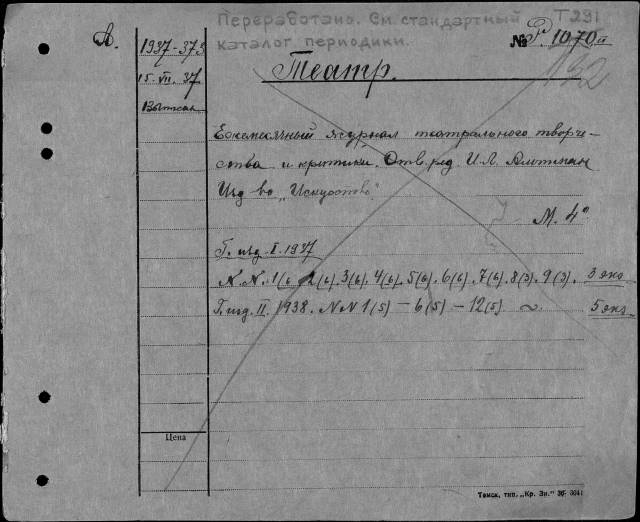 Переработано. См. стандартный Т291
каталог периодики.
А.
1937-373
№ Р 1070п
132
15. VII. 37
Театр.
Ежемесячный журнал театрального творче-
ства и критики. Отв. ред И. Л. Альтман
Изд-во „Искусство"
М. 4°
Г. изд. I. 1937
N. N. 1(6). 2(6). 3(6). 4(6). 5(6). 6(6). 7(6). 8(3). 9(3). 3 экз.
Г. изд. II. 1938. N N 1(5) — 6(5) — 12(5). 5 экз
Цена
Томск, тип. „Кр. Зн."